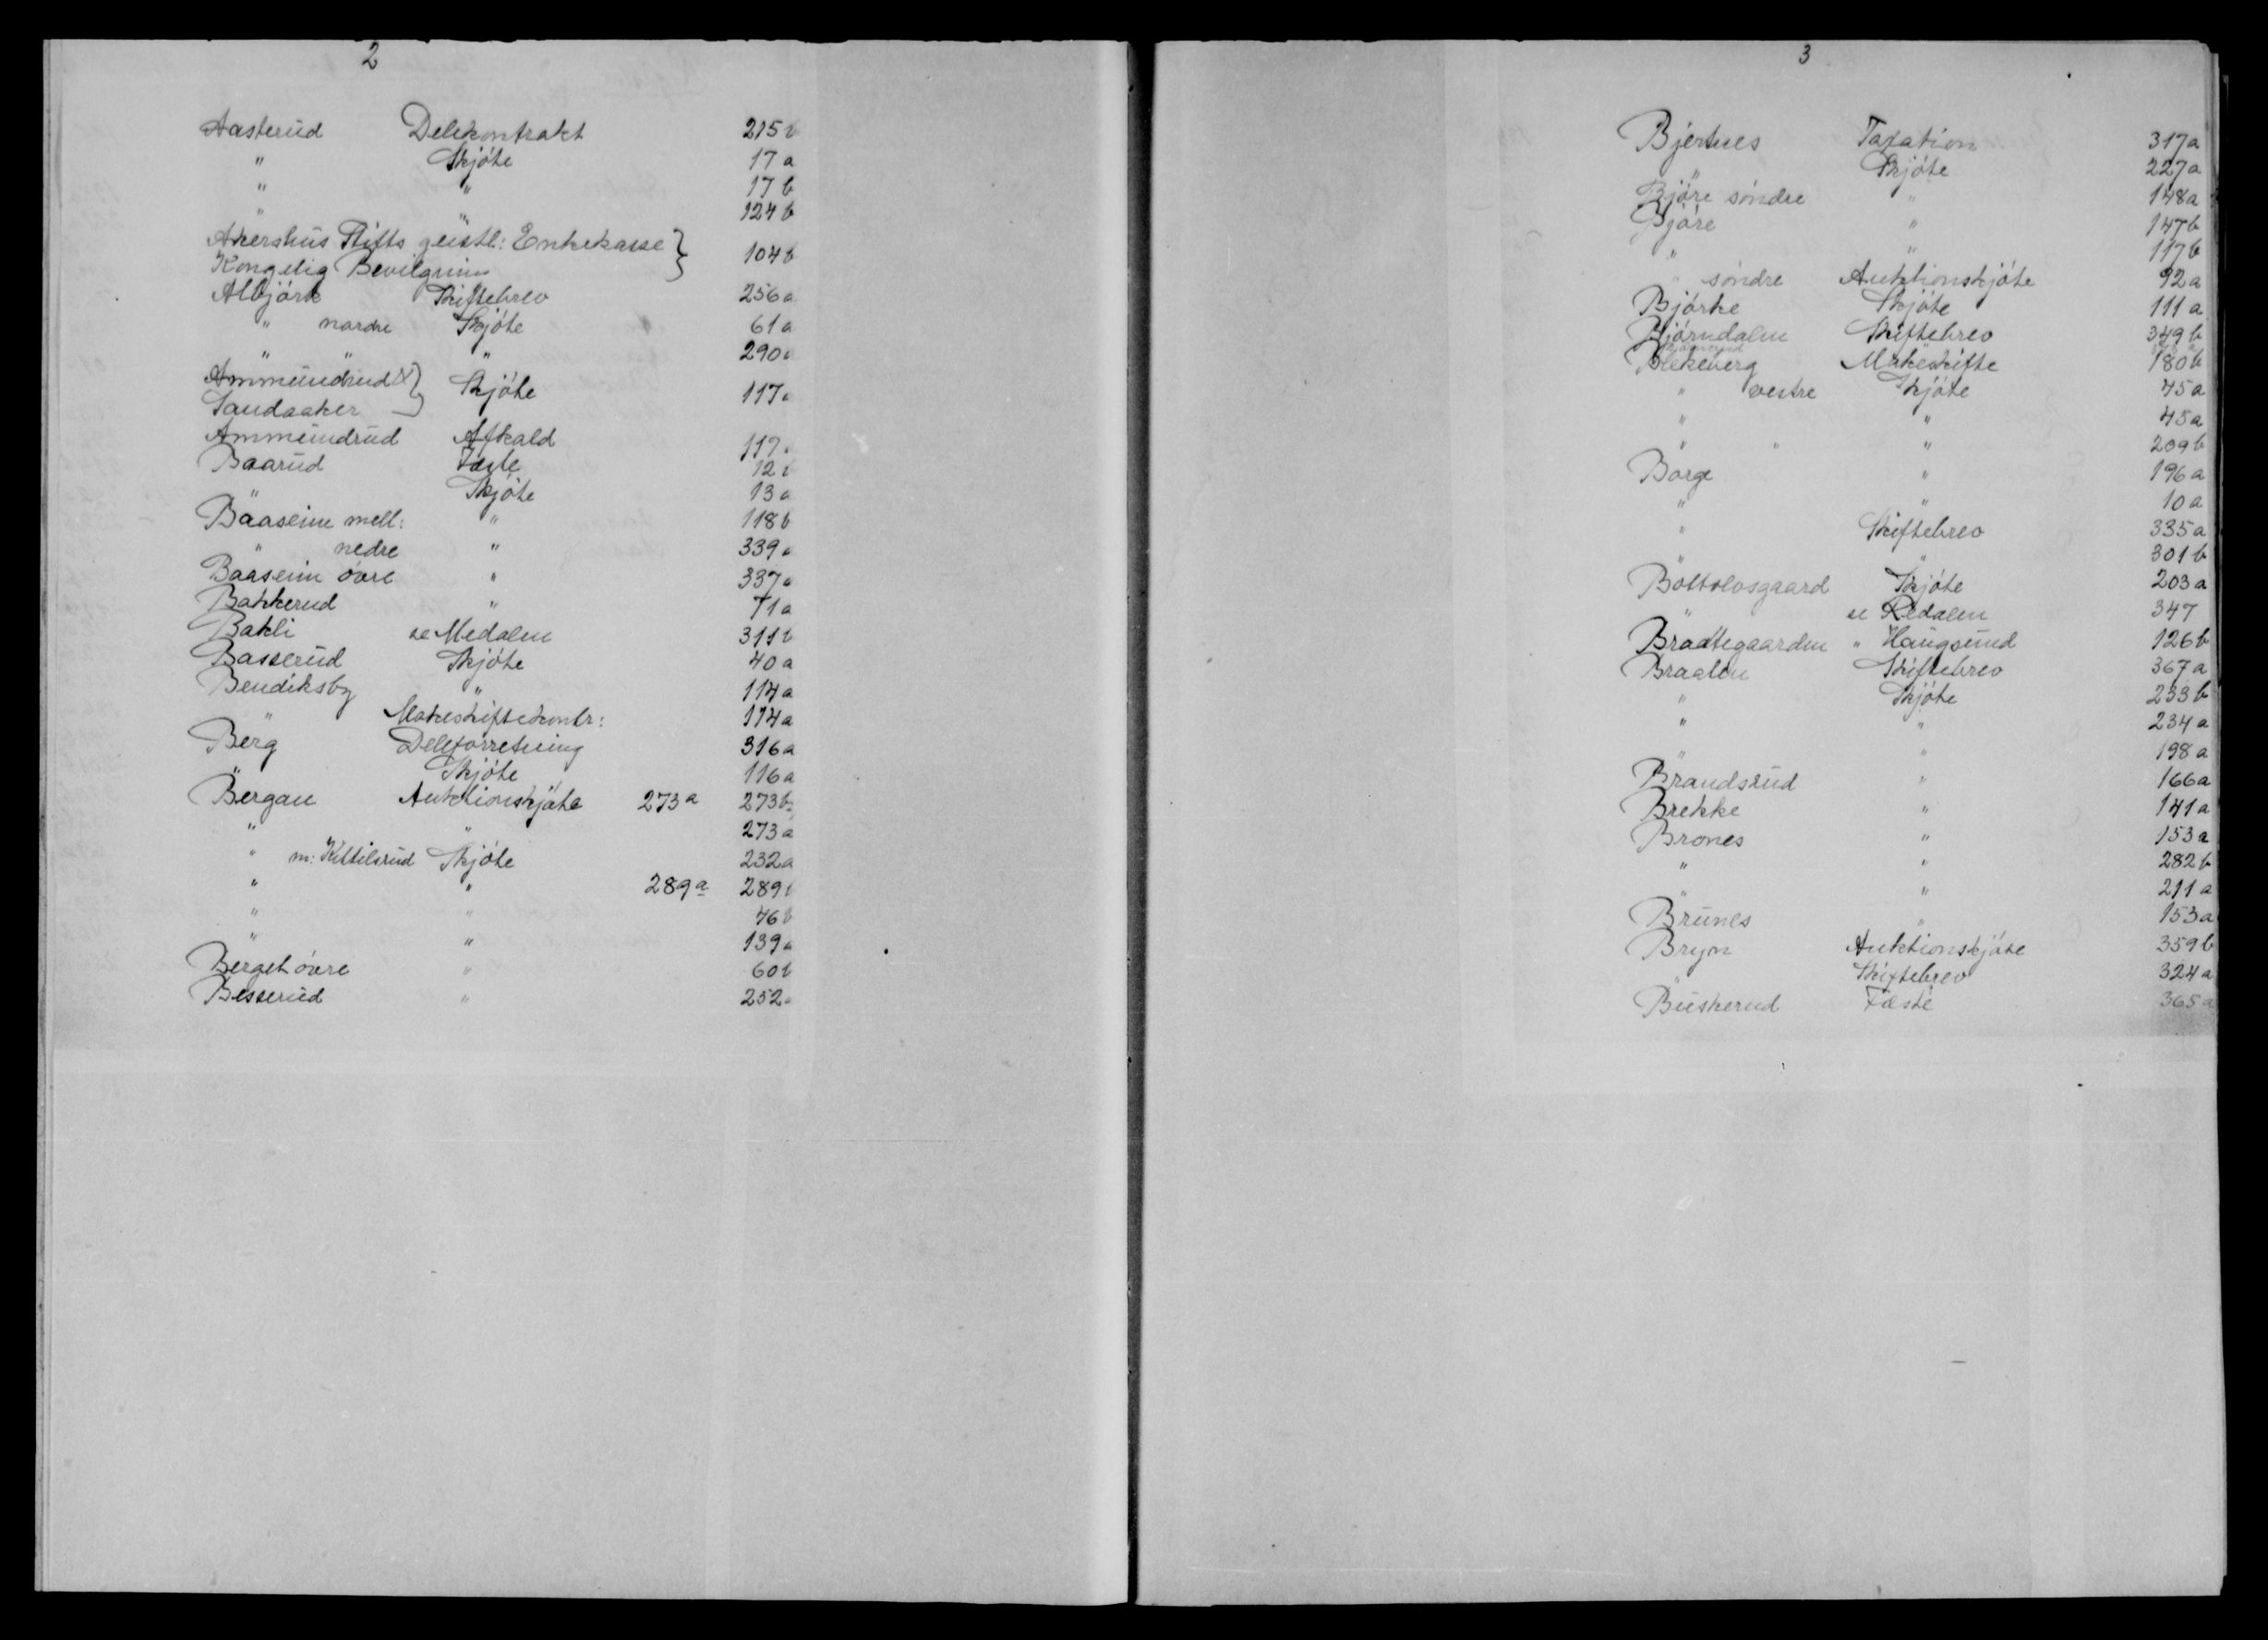 2
Aasterud Delekontrakt 215 b
" Skjöte 17 a
" " 17 b
" " 124 b
Akershus Stifts geistl: Enkekasse } 104 b
Kongelig Bevilgning
Albjörk Skiftebrev 256 a
" nordre Skjöte 61 a
" " " 290
Ammundrud & } Skjöte 117
Sandaaker
Ammundrud Afkald 117
Baarud Fæste 12 b
" Skjöte 13 a
Baaseim mell: " 118 b
" nedre " 339 a
Baaseim övre " 337 a
Bakkerud " 71 a
Bakli se Medalen 311 b
Basserud Skjöte 40 a
Bendiksby " 114 a
" Makeskiftekontr: 114 a
Berg Deleforretning 316 a
" Skjöte 116 a
Bergan Auktionskjöte 273 a 273 b
" " 273 a
" m: Kittilsrud Skjöte 232 a
" " 289 a 289 b
" " 76 b
" " 139 a
Berget övre " 60 b
Besserud " 252
3
Bjertnes Taxation 317 a
" Skjöte 227 a
Björe söndre " 148 a
Björe " 147 b
" " 117 b
" söndre Auktionskjöte 92 a
Björke Skjöte 111 a
Björndalen Skiftebrev 349 b
Blekeberg Makeskifte 180 b
" vestre Skjöte 75 a
" " 45 a
" " " 209 b
Borge " 196 a
" " 10 a
" Skiftebrev 335 a
" " 301 b
Bottolvsgaard Skjöte 203 a
" se Redalen 347
Braattegaarden " Haugsund 126 b
Braaten Skiftebrev 367 a
" Skjöte 233 b
" " 234 a
" " 198 a
Brandsrud " 166 a
Brekke " 141 a
Brones " 153 a
" " 282 b
" " 211 a
Brunes " 153 a
Bryn Auktionskjöte 359 b
" Skiftebrev 324 a
Buskerud Fæste 365 a